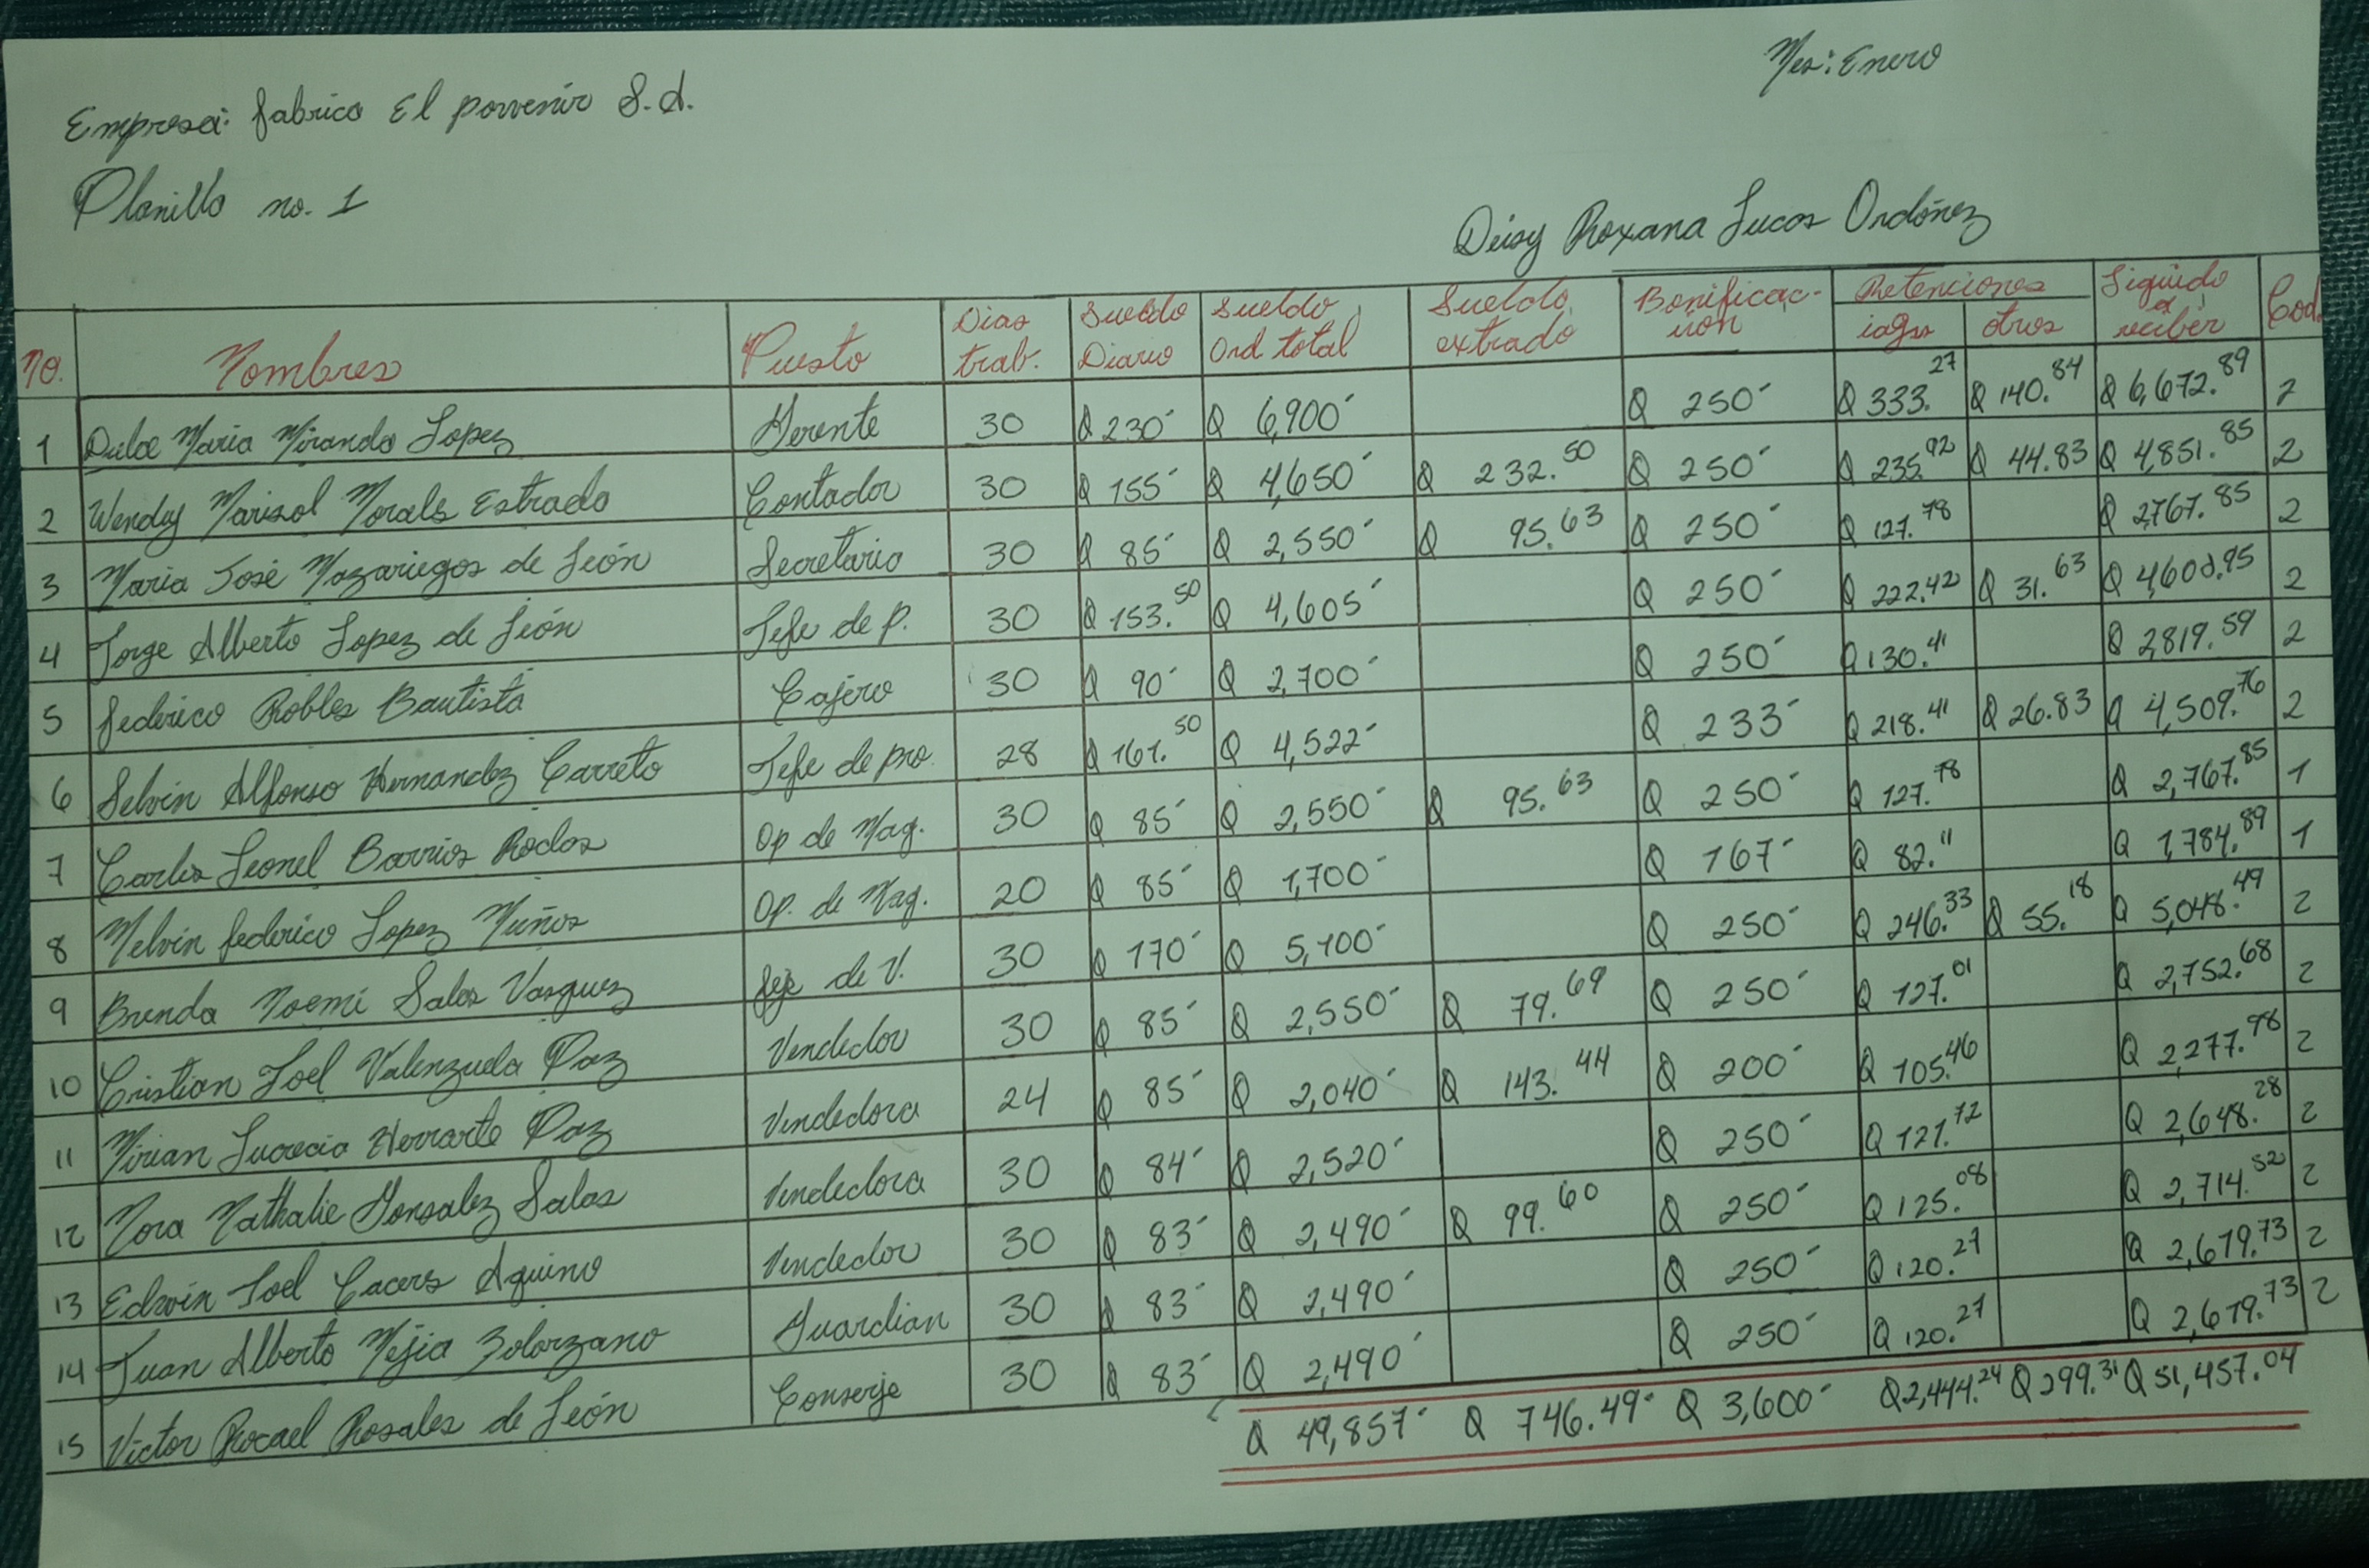 Mes: Enero
Empresa: fabrica El porvenir S.A.
Planilla no. 1
Deisy Roxana Lucas Ordóñez
No. Nombres Puesto Dias trab. Sueldo Diario Sueldo Ord total Sueldo extrado Bonificac-ión Retenciones iggs otros Liquido a recibir Cod.
1 Dulce Maria Miranda Lopez Gerente 30 Q 230 Q 6,900 Q 250 Q 333.27 Q 140.84 Q 6,672.89 2
2 Wendy Marisol Morals Estrada Contador 30 Q 155 Q 4,650 Q 232.50 Q 250 Q 235.92 Q 44.83 Q 4,851.85 2
3 Maria José Mazariegos de León Secretario 30 Q 85 Q 2,550 Q 95.63 Q 250 Q 127.78 Q 2,767.85 2
4 Jorge Alberto Lopez de León Jefe de P. 30 Q 153.50 Q 4,605 Q 250 Q 222.42 Q 31.63 Q 2
5 Federico Robles Bautista Cajero 30 Q 90 Q 2,700 Q 250 Q 130.41 Q 2,819.59 2
6 Selvin Alfonso Hernandez Carreto Jefe de pro. 28 Q 161.50 Q 4,522 Q 233 Q 218.41 Q 26.83 Q 4,509.76 2
7 Carlos Leonel Barrios Rodas Op de Maq. 30 Q 85 Q 2,550 Q 95.63 Q 250 Q 127.78 Q 2,767.85 1
8 Melvin federico Lopez Muños Op. de Maq. 20 Q 85 Q 1,700 Q 167 Q 82.11 Q 1,784.89 1
9 Brenda Noemi Salas Vasquez de V. 30 Q 170 Q 5,100 Q 250 Q 246.33 Q 55.18 Q 5,048.49 2
10 Cristian Joel Valenzuela Paz Vendedor 30 Q 85 Q 2,550 Q 79.69 Q 250 Q 127.01 Q 2,752.68 2
11 Mirian Lucrecia Herrarte Paz Vendedora 24 Q 85 Q 2,040 Q 143.44 Q 200 Q 105.46 Q 2,277.98 2
12 Nora Nathalie Gonsalez Salas Vendedora 30 Q 84 Q 2,520 Q 250 Q 121.72 Q 2,648.28 2
13 Edwin Joel Cacers Aquino Vendedor 30 Q 83 Q 2,490 Q 99.60 Q 250 Q 125.08 Q 2,714.52 2
14 Juan Alberto Mejia Zolorzano Guardian 30 Q 83 Q 2,490 Q 250 Q 120.27 Q 2,619.73 2
15 Victor Rocael Rosales de León Conserje 30 Q 83 Q 2,490 Q 250 Q 120.27 Q 2,619.73 2
Q 49,857 Q 746.49 Q 3,600 Q 2,444.24 Q 299.31 Q 51,457.04